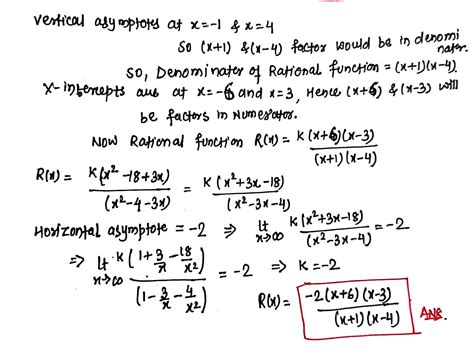 Vertical asymptotes at x=-1 & x=4
So (x+1) &(x-4) factor would be in denominator.
So, Denominator of Rational function = (x+1)(x-4).
X-intercepts are at x=-6 and x=3, Hence (x+6) & (x-3) will
be factors in Numerator.
Now Rational function R(x) = K(x+6)(x-3) / (x+1)(x-4)
R(x) = K(x²-18+3x) / (x²-4-3x) = K(x²+3x-18) / (x²-3x-4)
Horizontal asymptote = -2 ⇒ lt x→∞ K(x²+3x-18) / (x²-3x-4) = -2
⇒ lt x→∞ K(1+3/x-18/x²) / (1-3/x-4/x²) = -2 ⇒ K=-2
R(x) = -2(x+6)(x-3) / (x+1)(x-4) Ans.